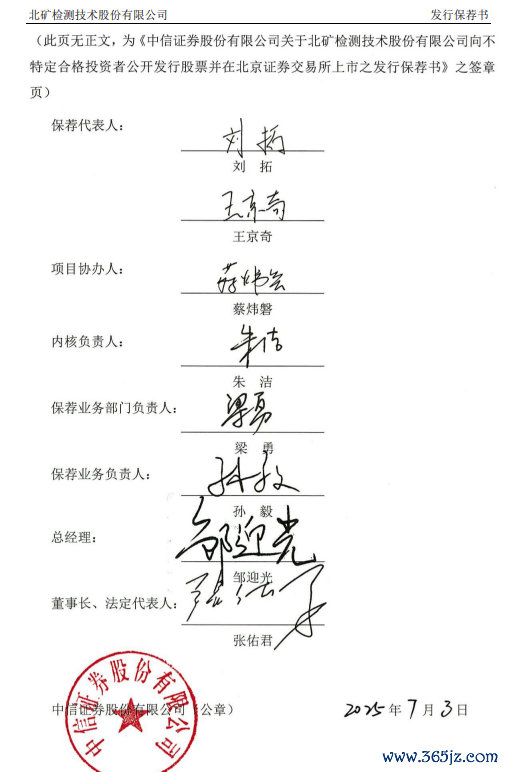 北矿检测技术股份有限公司 发行保荐书
（此页无正文，为《中信证券股份有限公司关于北矿检测技术股份有限公司向不
特定合格投资者公开发行股票并在北京证券交易所上市之发行保荐书》之签章
页）
保荐代表人：
刘拓
刘 拓
王京奇
王京奇
项目协办人：
蔡炜磐
内核负责人：
朱洁
朱 洁
保荐业务部门负责人：
梁勇
梁 勇
保荐业务负责人：
孙毅
孙 毅
总经理：
邹迎光
邹迎光
董事长、法定代表人：
张佑君
张佑君
中信证券股份有限公司（公章） 2025年7月3日
中信证券股份有限公司
www.365jz.com